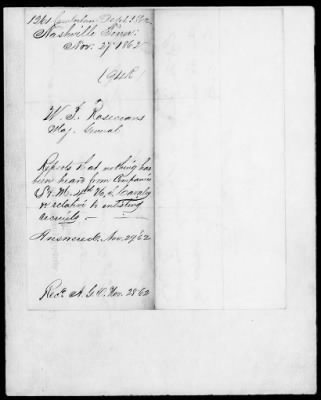 1261 Cumberland Dept. 1862
Nashville Tenn.
Nov. 27" 1862
W. S. Rosecrans
Maj. General
Reports that nothing has
been heard from Companies
& M. 4th U.S. Cavalry
relative to enlisting
recruits —
Answered Nov. 29/62
Recd. A.G.O. Nov. 28/62